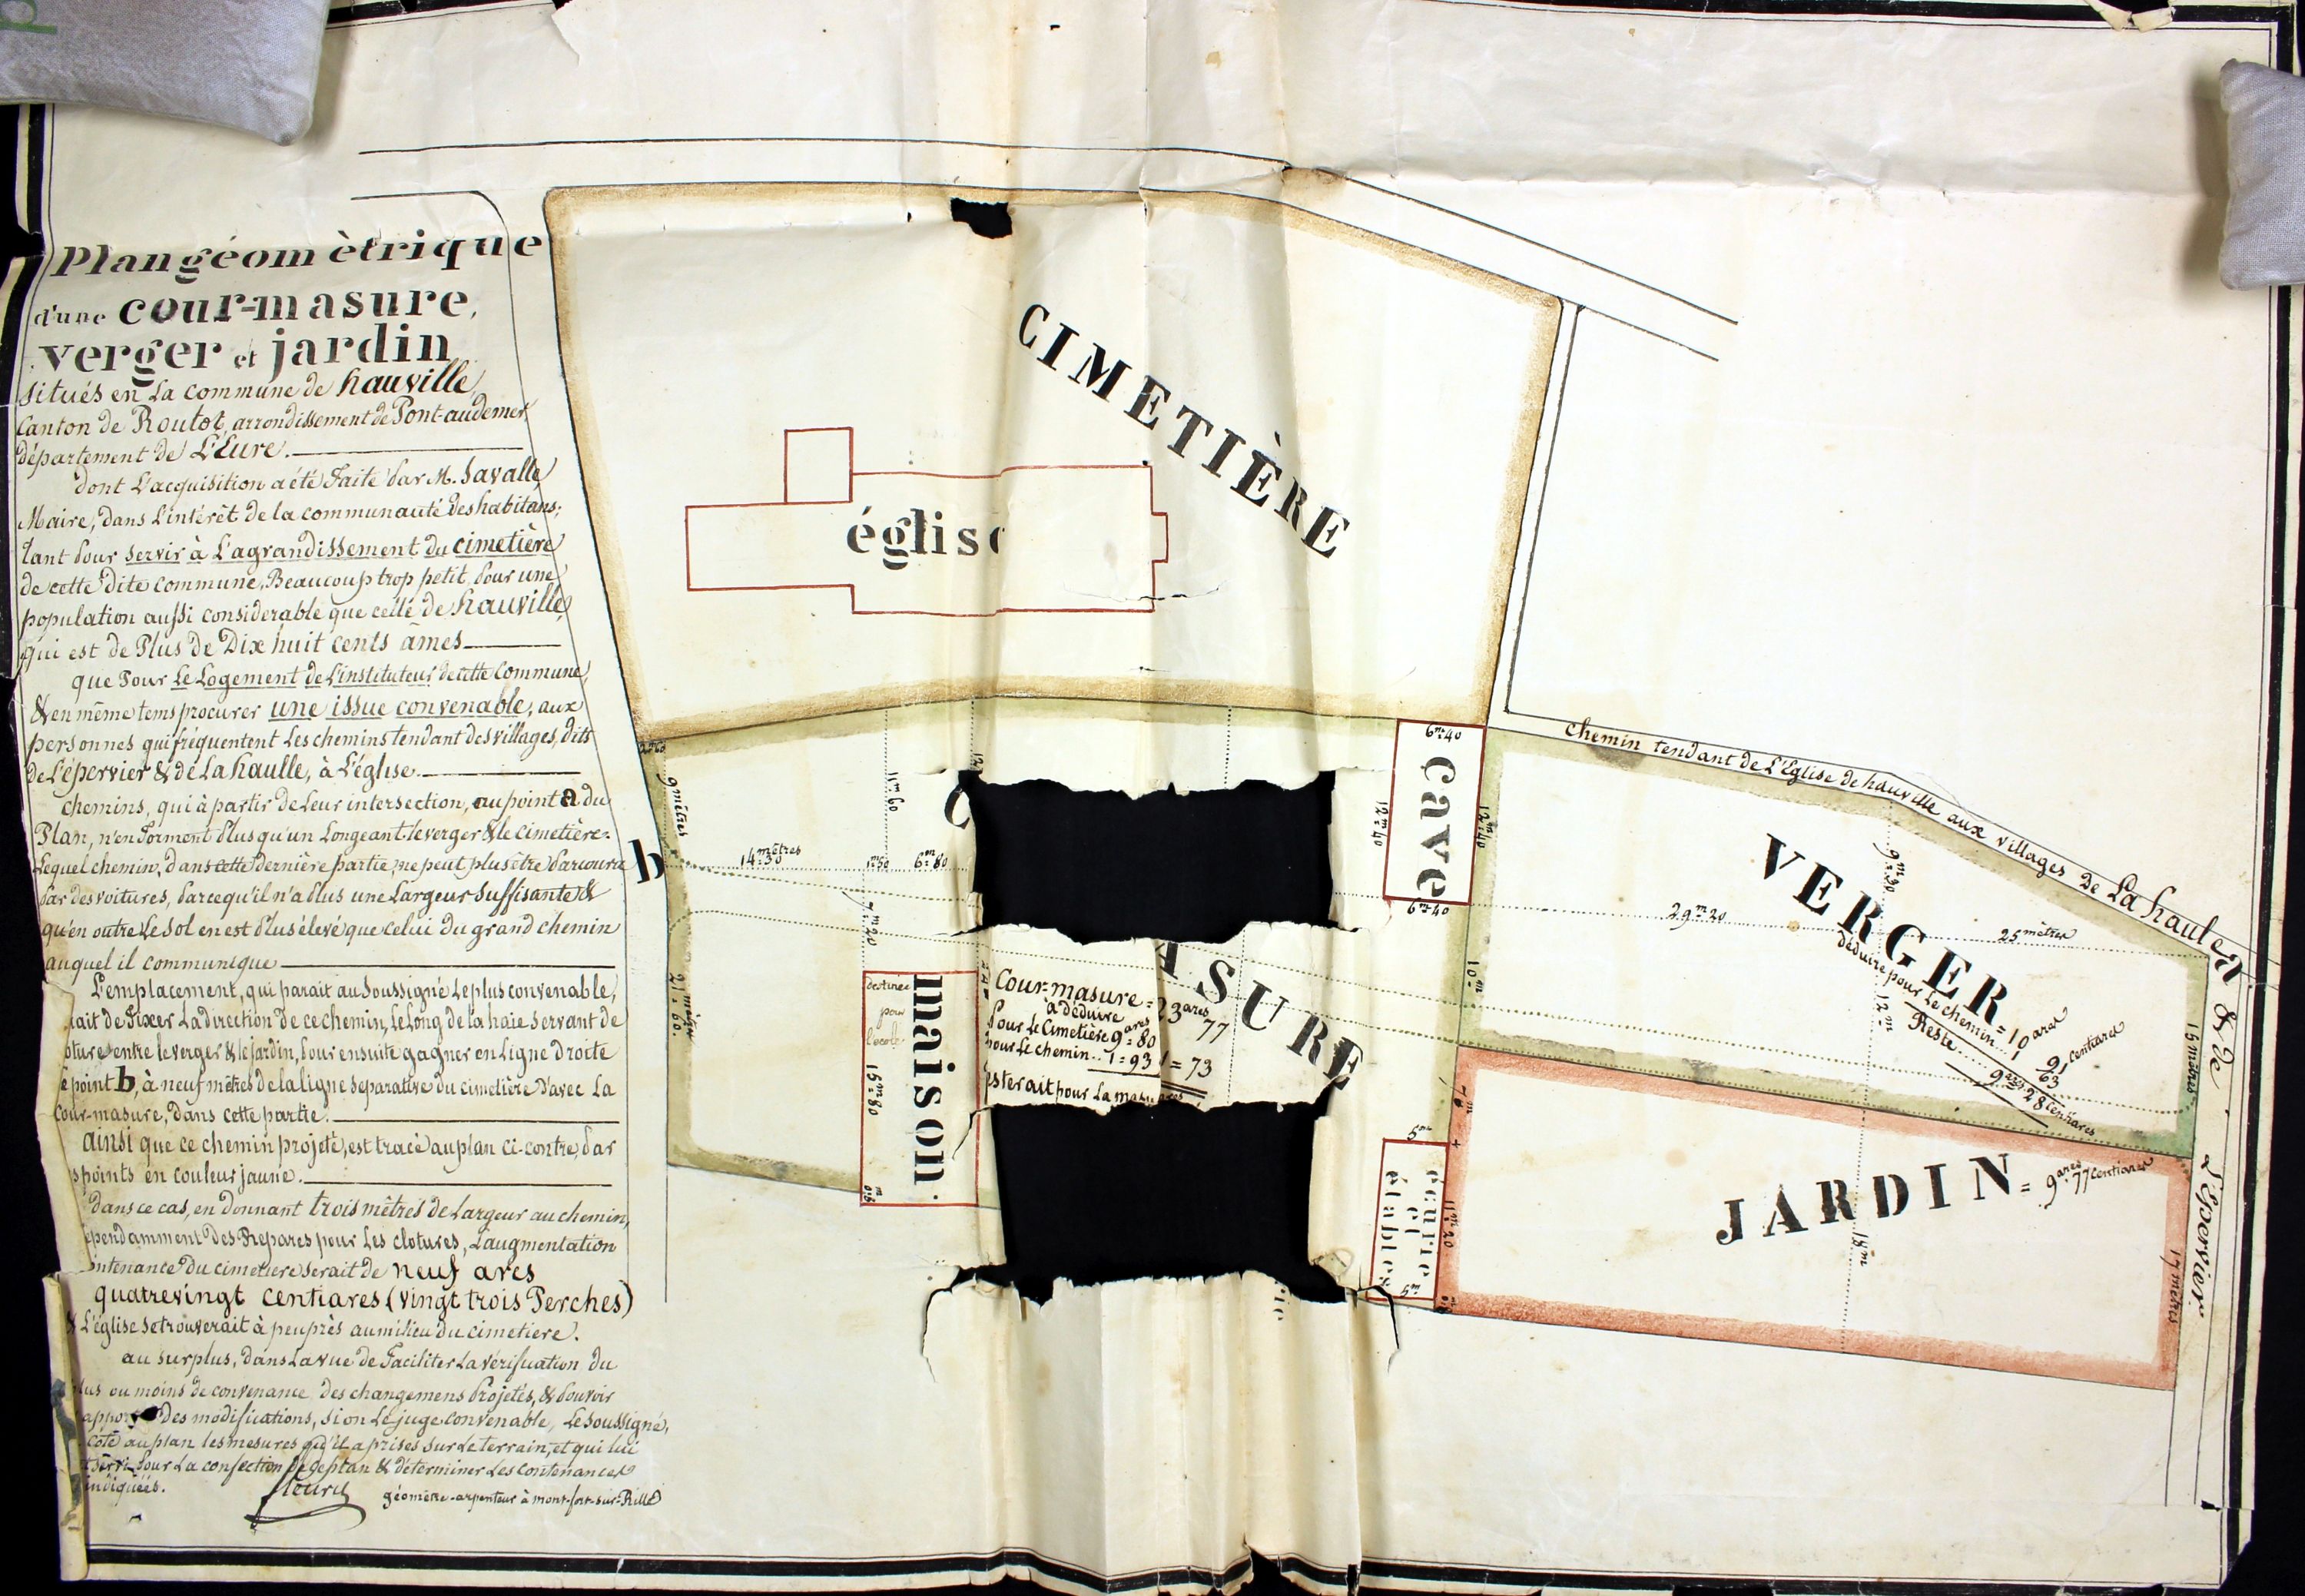 Plan géomètrique
d'une cour-masure,
verger et jardin
situés en la commune de hauville,
Canton de Routot, arrondissement de Pont-audemer,
département de L'Eure.
dont L'acquisition a été faite par M. Savalle,
Maire, dans L'intérêt de la communauté des habitans;
tant pour servir à L'agrandissement du cimetière
de cette dite commune, Beaucoup trop petit, pour une
population aussi considerable que celle de hauville,
qui est de Plus de Dix huit cents âmes
que Pour Le Logement de L'instituteur de cette commune,
& en même tems procurer une issue convenable, aux
personnes qui fréquentent Les chemins tendant des villages, dits
de L'épervier & de La haulle, à L'église.
chemins, qui à partir de Leur intersection, au point a du
Plan, n'en forment Plus qu'un Longeant le verger & le cimetière.
Lequel chemin, dans cette dernière partie, ne peut plus être parcouru
par des voitures, parcequ'il n'a plus une Largeur suffisante &
qu'en outre Le sol en est plus élevé que celui du grand chemin
auquel il communique
L'emplacement, qui parait au Soussigné Le plus convenable,
rait de Fixer La direction de ce chemin, Le Long de la haie servant de
oture entre le verger & le jardin, pour ensuite gagner en Ligne droite
e point b, à neuf mètres de la ligne separative du cimetière d'avec La
Cour-masure, dans cette partie.
ainsi que ce chemin projeté, est tracé au plan ci-contre, par
s points en couleur jaune.
dans ce cas, en donnant trois mêtres de Largeur au chemin,
épendamment des Repares pour Les clotures, L'augmentation
ntenance du cimetiere serait de neuf ares
quatrevingt centiares (vingt trois Perches)
& L'église se trouverait à peuprès au milieu du cimetiere.
au surplus, dans La vue de Faciliter La vérification du
lus ou moins de convenance des changemens projetés, & pouvoir
appor des modifications, si on Le juge convenable, Le soussigné,
côté au plan les mesures qu'il a prises sur Le terrain, et qui lui
t servi pour La confection de ce plan & déterminer Les contenances
indiquées.
fleury
géomètre-arpenteur à mont-fort-sur-Rille
CIMETIÈRE
églis
Chemin tendant de L'Eglise de hauville aux villages de La haule & de L'épervier
a
b
9 mètres
11m60
14 mètres 30
1m50
6m80
7m20
21 mètres 60.
C
ASURE
6m40
Cave
12m40
12m40
6m40
10m
VERGER = 10 ares 91 centiares
déduire pour Le chemin .. 1 63
Reste ... 9 ares 28 centiares
29m20
25 mètres
9m30
12m
15 mètres
destinée
pour
l'ecole
maison
15m80
Cour-masure = 23 ares 77
à déduire
Pour Le Cimetière 9 ares = 80
pour Le chemin .. 1 = 93
1 = 73
esterait pour La masu
5m
écurie
et
étable
11m20
5m
JARDIN = 9 ares 77 centiares
18m
17 mètres